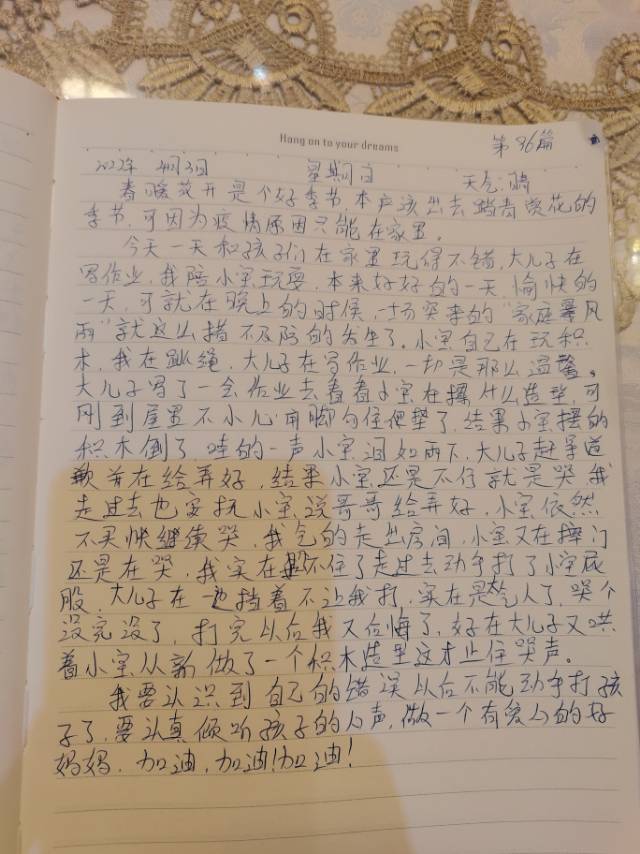 Hang on to your dreams
第96篇
2022年 4月3日 星期日 天气:晴
春暖花开是个好季节,本应该出去踏青赏花的
季节,可因为疫情原因只能在家里。
今天一天和孩子们在家里玩得不错,大儿子在
写作业,我陪小宝玩耍,本来好好的一天,愉快的
一天,可就在晚上的时候,一场突来的“家庭暴风
雨”就这么措不及防的发生了。小宝自己在玩积
木,我在跳绳,大儿子在写作业,一切是那么温馨。
大儿子写了一会作业去看看小宝在摆什么造型,可
刚到屋里不小心用脚勾住把垫了,结果小宝摆的
积木倒了,哇的一声小宝泪如雨下,大儿子赶导道
歉并在给弄好,结果小宝还是不行就是哭,我
走过去也安抚小宝说哥哥给弄好,小宝依然
不买帐继续哭,我气的走出房间,小宝又在摔门
还是在哭,我实在忍不住了走过去动手打了小宝屁
股,大儿子在一边挡着不让我打,实在是气人了,哭个
没完没了,打完以后我又后悔了,好在大儿子又哄
着小宝从新做了一个积木造型这才止住哭声。
我要认识到自己的错误以后不能动手打孩
子了,要认真倾听孩子的心声,做一个有爱心的好
妈妈,加油,加油!加油!